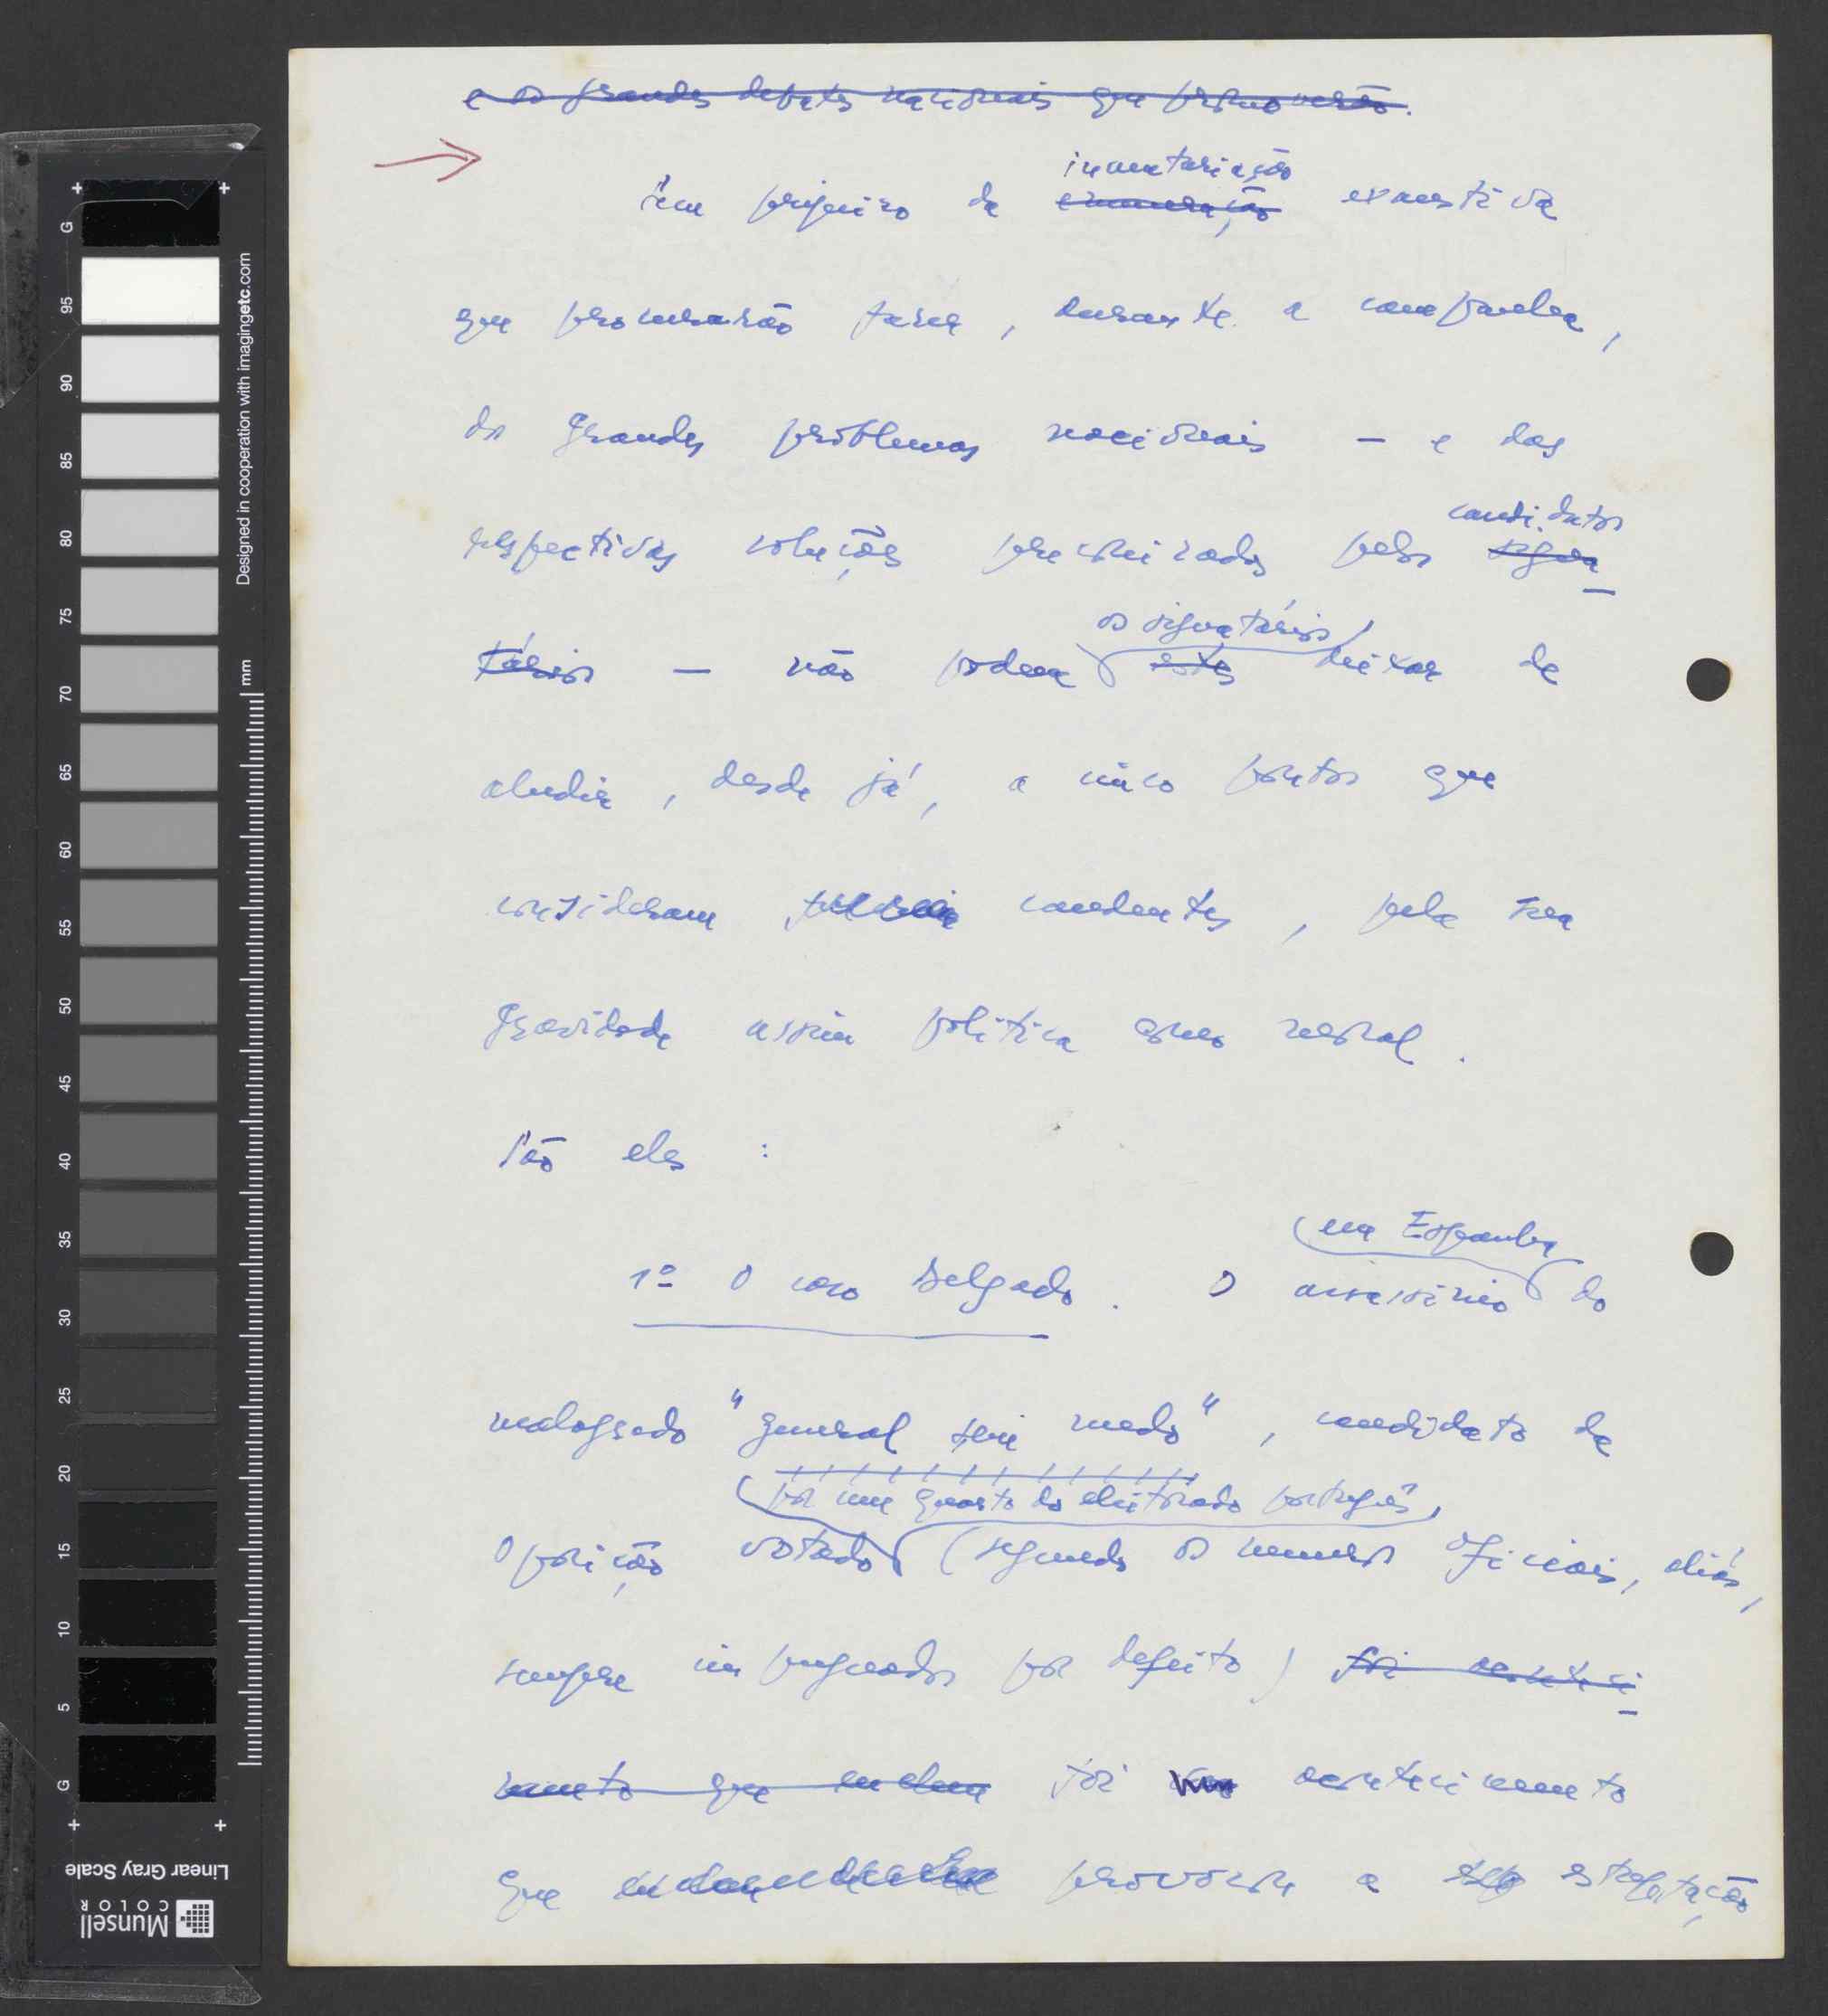 e os grandes debates nacionais que promoverão.
inventariação
Sem prejuízo da enumeração exaustiva
que procurarão fazer, durante a campanha,
dos grandes problemas nacionais — e das
candidatos
respectivas soluções preconizadas pelos signa-
os signatários
tários — não podem estes deixar de
aludir, desde já, a cinco pontos que
consideram candentes, pela sua
gravidade assim política como moral.
São eles:
em Espanha
1º O caso Delgado. O assassínio do
malogrado "general sem medo", candidato da
por um quarto do eleitorado português,
Oposição votado (segundo os números oficiais, aliás,
sempre impugnados por defeito) foi aconteci-
mento que foi acontecimento
que provocou a estupefacção
G 95 90 85 80 75 70 65 60 55 50 45 40 35 30 25 20 15 10 5 G
Designed in cooperation with imagingetc.com
mm
Linear Gray Scale
Munsell
COLOR